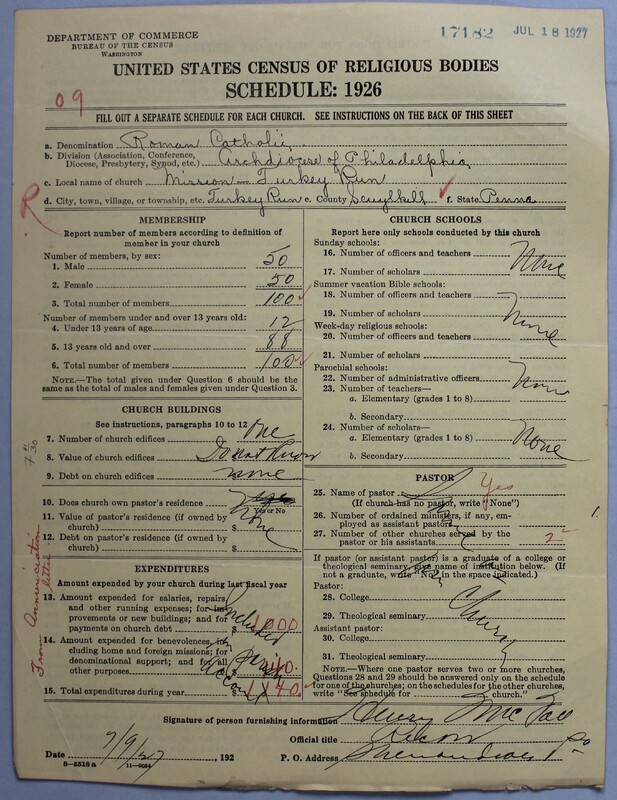 DEPARTMENT OF COMMERCE
BUREAU OF THE CENSUS
WASHINGTON
17182 JUL 18 1927
UNITED STATES CENSUS OF RELIGIOUS BODIES
SCHEDULE: 1926
09
FILL OUT A SEPARATE SCHEDULE FOR EACH CHURCH. SEE INSTRUCTIONS ON THE BACK OF THIS SHEET
a. Denomination Roman Catholic
b. Division (Association, Conference, Diocese, Presbytery, Synod, etc.) Archdiocese of Philadelphia
c. Local name of church Mission - Turkey Run
d. City, town, village, or township, etc. Turkey Run e. County Scuylkill f. State Penna
R
MEMBERSHIP
Report number of members according to definition of
member in your church
Number of members, by sex:
1. Male 50
2. Female 50
3. Total number of members 100
Number of members under and over 13 years old:
4. Under 13 years of age 12
5. 13 years old and over 88
6. Total number of members 100
NOTE.—The total given under Question 6 should be
the same as the total of males and females given under Question 3.
CHURCH BUILDINGS
See instructions, paragraphs 10 to 12
7. Number of church edifices one
8. Value of church edifices Do not Know
9. Debt on church edifices none
10. Does church own pastor's residence
Yes or No
11. Value of pastor's residence (if owned by
church) $ none
12. Debt on pastor's residence (if owned by
church) $
EXPENDITURES
Amount expended by your church during last fiscal year
13. Amount expended for salaries, repairs,
and other running expenses; for im-
provements or new building; and for
payments on church debt $ 1000
Included
14. Amount expended for benevolences, in-
cluding home and foreign missions; for
denominational support; and for all
other purposes 140.
15. Total expenditures during year 1140.
From Annunciation
letter
CHURCH SCHOOLS
Report here only schools conducted by this church
Sunday schools:
16. Number of officers and teachers
17. Number of scholars
None
Summer vacation Bible schools:
18. Number of officers and teachers
19. Number of scholars
None
Week-day religious schools:
20. Number of officers and teachers
21. Number of scholars
Parochial schools:
22. Number of administrative officers
None
23. Number of teachers—
a. Elementary (grades 1 to 8)
b. Secondary
24. Number of scholars—
a. Elementary (grades 1 to 8)
None
b. Secondary
PASTOR
25. Name of pastor Yes
(If church has no pastor, write "None")
26. Number of ordained ministers, if any, em-
ployed as assistant pastors
27. Number of other churches served by the
pastor or his assistants 2
If pastor (or assistant pastor) is a graduate of a college or
theological seminary, give name of institution below. (If
not a graduate, write "No" in the space indicated.)
Pastor:
28. College
29. Theological seminary
Assistant pastor:
30. College
31. Theological seminary
NOTE.—Where one pastor serves two or more churches,
Questions 28 and 29 should be answered only on the schedule
for one of the churches; on the schedules for the other churches,
write "See schedule for church."
Signature of person furnishing information
Official title
Date 7/9/27, 192 P. O. Address Shenandoah Pa
8—5518a 11—9054